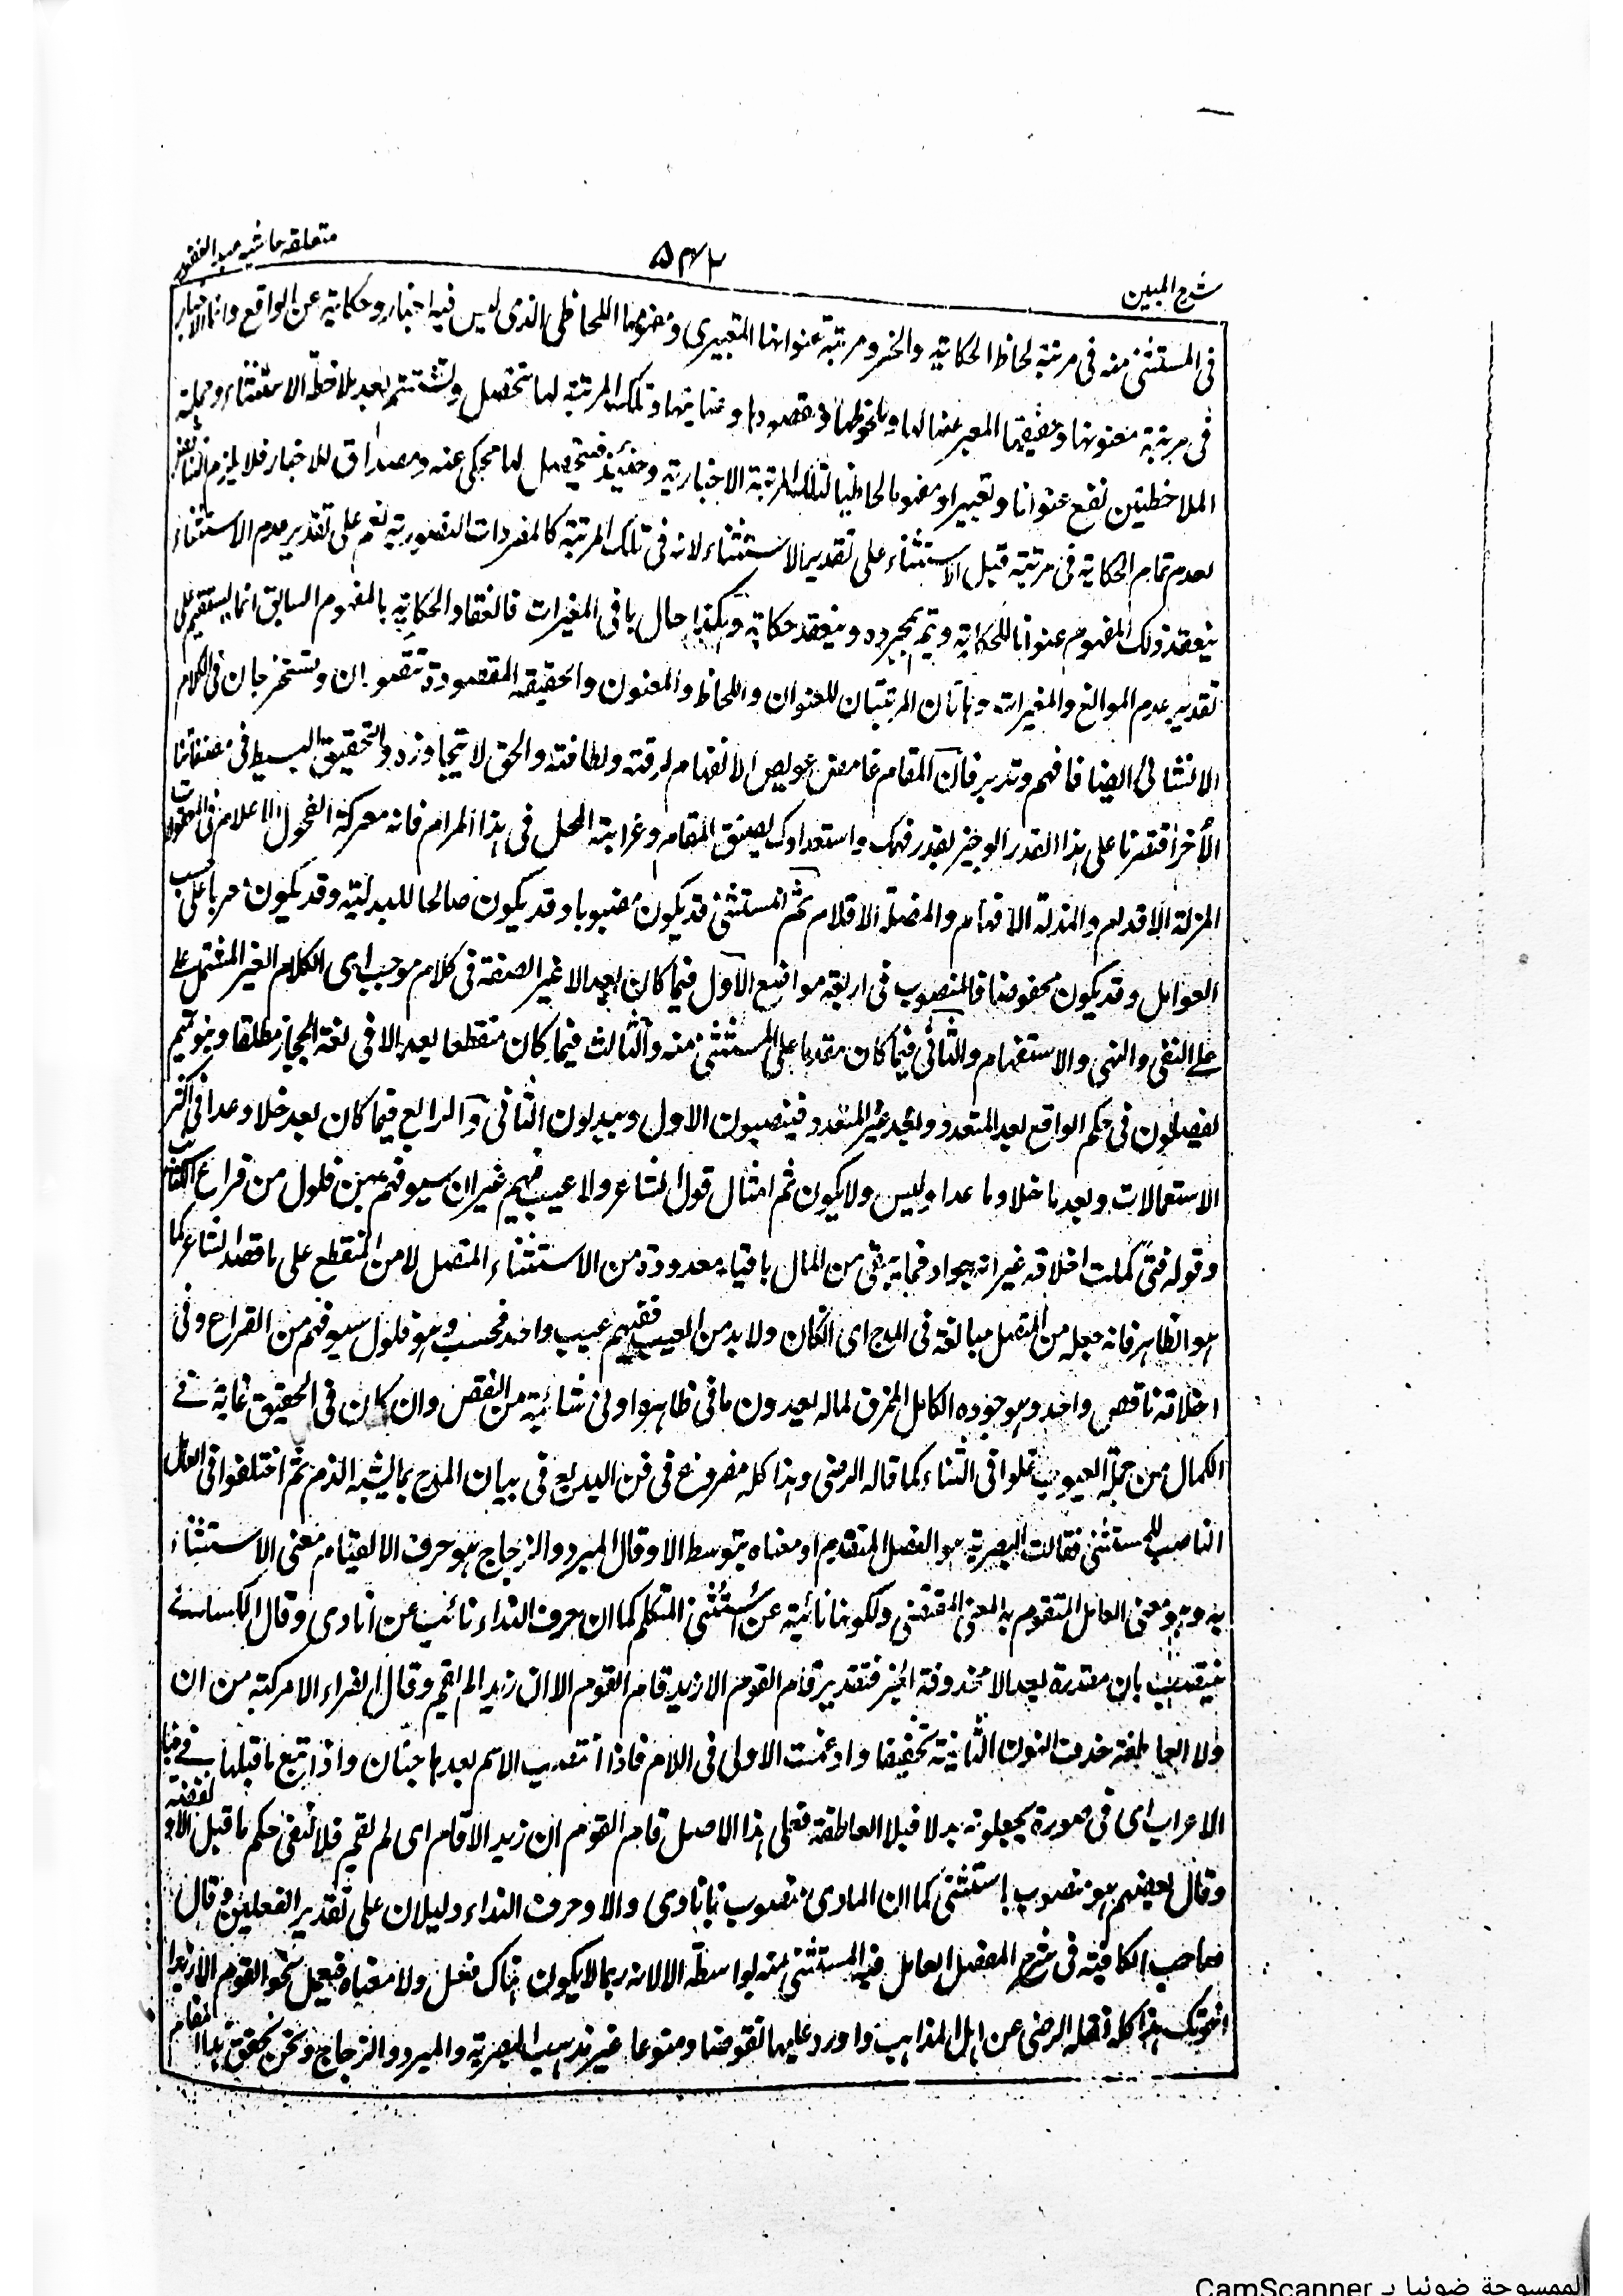 شرح المبين
۵۴۲
متعلقه حاشيه عبد الغفور
فى المستثنى منه فى مرتبة لحاظ الحكاية والخبر ومرتبة عنوانها التعبيرى ومفهومها اللحاظى الذى ليس فيه اخبار وحكاية عن الواقع وانما الاخبار
فى مرتبة معنونها وحقيقتها المعبر عنها لها وملحوظها ومقصودها وتلك المرتبة لها تتحصل وتستتم بعد ملاحظة الاستثناء وبجملة
الملاحظتين تقع عنوانا وتعبيرا ومفهوما لحاظيا لتلك المرتبة الاخبارية وحينئذ فيتحصل لها محكى عنه ومصداق للاخبار فلا يلزم التناقض
لعدم تمام الحكاية فى مرتبة قبل الاستثناء على تقدير الاستثناء لانه فى تلك المرتبة كالمفردات التصورية نعم على تقدير عدم الاستثناء
ينعقد ذلك المفهوم عنوانا للحكاية ويتم بمجرده وينعقد حكاية وهكذا حال باقى المغيرات فانعقاد الحكاية بالمفهوم السابق انما يستقيم على
تقدير عدم الموانع والمغيرات وهاتان المرتبتان للعنوان واللحاظ والمعنون والحقيقة المقصودة تتصوران وتستخرجان فى الكلام
الانشائى ايضا فافهم وتدبر فان المقام غامض عويص الانفهام لرقته ولطافته والحق لا يتجاوزه والتحقيق البسيط فى مصنفاتنا
الأخر اقتصرنا على هذا القدر الوجيز بقدر فهمك واستعدادك لضيق المقام وغرابة المحل فى هذا المرام فانه معركة الفحول الاعلام فى المعقولات
المزلة الاقدام والمذلة الافهام والمضلة الاقلام ثم المستثنى قد يكون منصوبا وقد يكون صالحا للبدلية وقد يكون معربا على حسب
العوامل وقد يكون مخفوضا فالمنصوب فى اربعة مواضع الأول فيما كان بعد الا غير الصفة فى كلام موجب اى الكلام الغير المشتمل على
على النفى والنهى والاستفهام والثانى فيما كان مقدما على المستثنى منه والثالث فيما كان منقطعا بعد الا فى لغة الحجاز مطلقا وبنو تميم
يفصلون فى حكم الواقع بعد المتعدد وبعد غير المتعدد فينصبون الاول ويبدلون الثانى والرابع فيما كان بعد خلا وعدا فى اكثر
الاستعمالات وبعد ما خلا وما عدا وليس ولا يكون ثم امثال قول الشاعر ولا عيب فيهم غير ان سيوفهم بهن فلول من قراع الكتائب
وقوله فتى كملت اخلاقه غير انه جواد فما يبقى من المال باقيا معدودة من الاستثناء المتصل لا من المنقطع على ما قصد الشاعر كما
هو الظاهر فانه جعله من المتصل مبالغة فى المدح اى ان كان ولا بد من العيب ففيهم عيب واحد فحسب وهو فلول سيوفهم من القراع وفى
اخلاقه ناقص واحد وهو جوده الكامل المخرق لماله يعدون ما فى ظاهره ادنى شائبة من النقص وان كان فى الحقيقة غاية فى
الكمال من جملة العيوب غلوا فى الثناء كما قاله الرضى وهذا كله مفروغ فى فن البديع فى بيان المدح بما يشبه الذم ثم اختلفوا فى العامل
الناصب للمستثنى فقالت البصرية هو الفعل المتقدم او معناه بتوسط الا وقال المبرد والزجاج هو حرف الا لقيام معنى الاستثناء
به وهو معنى العامل المتقوم به المعنى المقتضى ولكونها نائبة عن استثنى المتكلم كما ان حرف النداء نائب عن انادى وقال الكسائى
فينتصب بان مقدرة بعد الا محذوفة الخبر فتقدير قام القوم الا زيدا قام القوم الا ان زيدا لم يقم وقال الفراء الا مركبة من ان
ولا العاطفة حذفت النون الثانية تخفيفا وادغمت الاولى فى اللام فاذا انتصب الاسم بعدها فبان واذا تبع ما قبلها فى
الاعراب اى فى صورة يجعلونه بدلا فبلا العاطفة فعلى هذا الاصل قام القوم ان زيدا لا قام اى لم يقم فلا لنفى حكم ما قبل الا
وقال بعضهم هو منصوب باستثنى كما ان المنادى منصوب بانادى والا وحرف النداء دليلان على تقدير الفعلين وقال
صاحب الكافية فى شرح المفصل العامل فيه المستثنى منه بواسطة الا لانه ربما لا يكون هناك فعل ولا معناه فيعمل نحو القوم الا زيدا
اخوتك هذا كله نقله الرضى عن اهل المذاهب واورد عليها نقوضا ومنوعا غير مذهب البصرية والمبرد والزجاج ونحن نحقق هذا المقام
الممسوحة ضوئيا بـ CamScanner